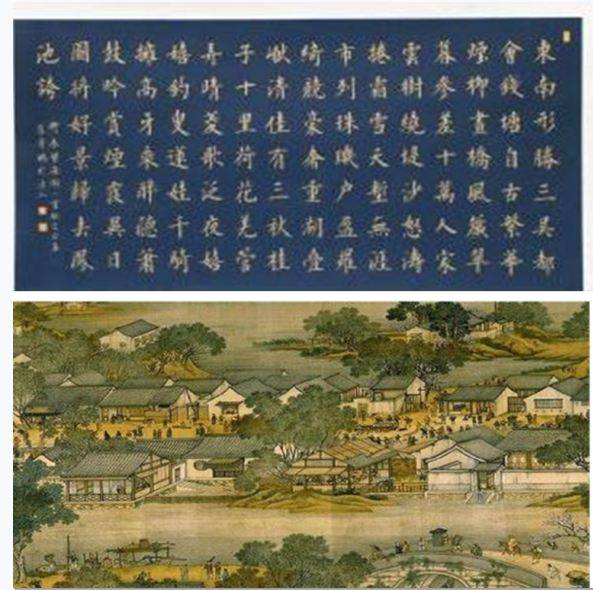 東南形勝三吳都
會錢塘自古繁華
煙柳畫橋風簾翠
幕參差十萬人家
雲樹繞堤沙怒濤
捲霜雪天塹無涯
市列珠璣戶盈羅
綺競豪奢重湖疊
巘清佳有三秋桂
子十里荷花羌管
弄晴菱歌泛夜嬉
嬉釣叟蓮娃千騎
擁高牙乘醉聽簫
鼓吟賞煙霞異日
圖將好景歸去鳳
池誇